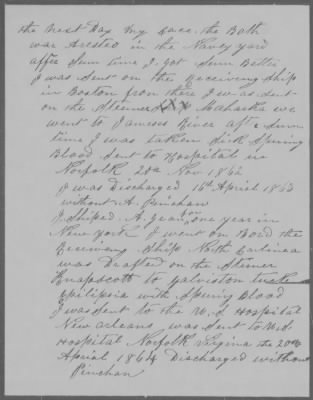 the next Day my Case. the Both
was Arested in the Navey yard
after Sum time I got Sum Better
I was Sent on the Receiving Ship
in Boston from there I was sent
on the Steamer Mahaska we
went to Jameses River aft a Sum
time I was taken Sick Spiting
Blood Sent to Hospital in
Norfolk 20th Nov 1862
I was Discharged 16th April 1863
without A. Pinchan
I Shiped A. Year, for one year in
New York I went on Bord the
Receiving Ship North Carlinea
was Drafted on the Steamer
to Galviston tuck
Epilipsia with Spiting Blood
I was sent to the U.S. Hospital
New orleans was sent to U.S.
Hospital Norfolk Virgina the 20th
Aprial 1864 Discharged without
Pinchan